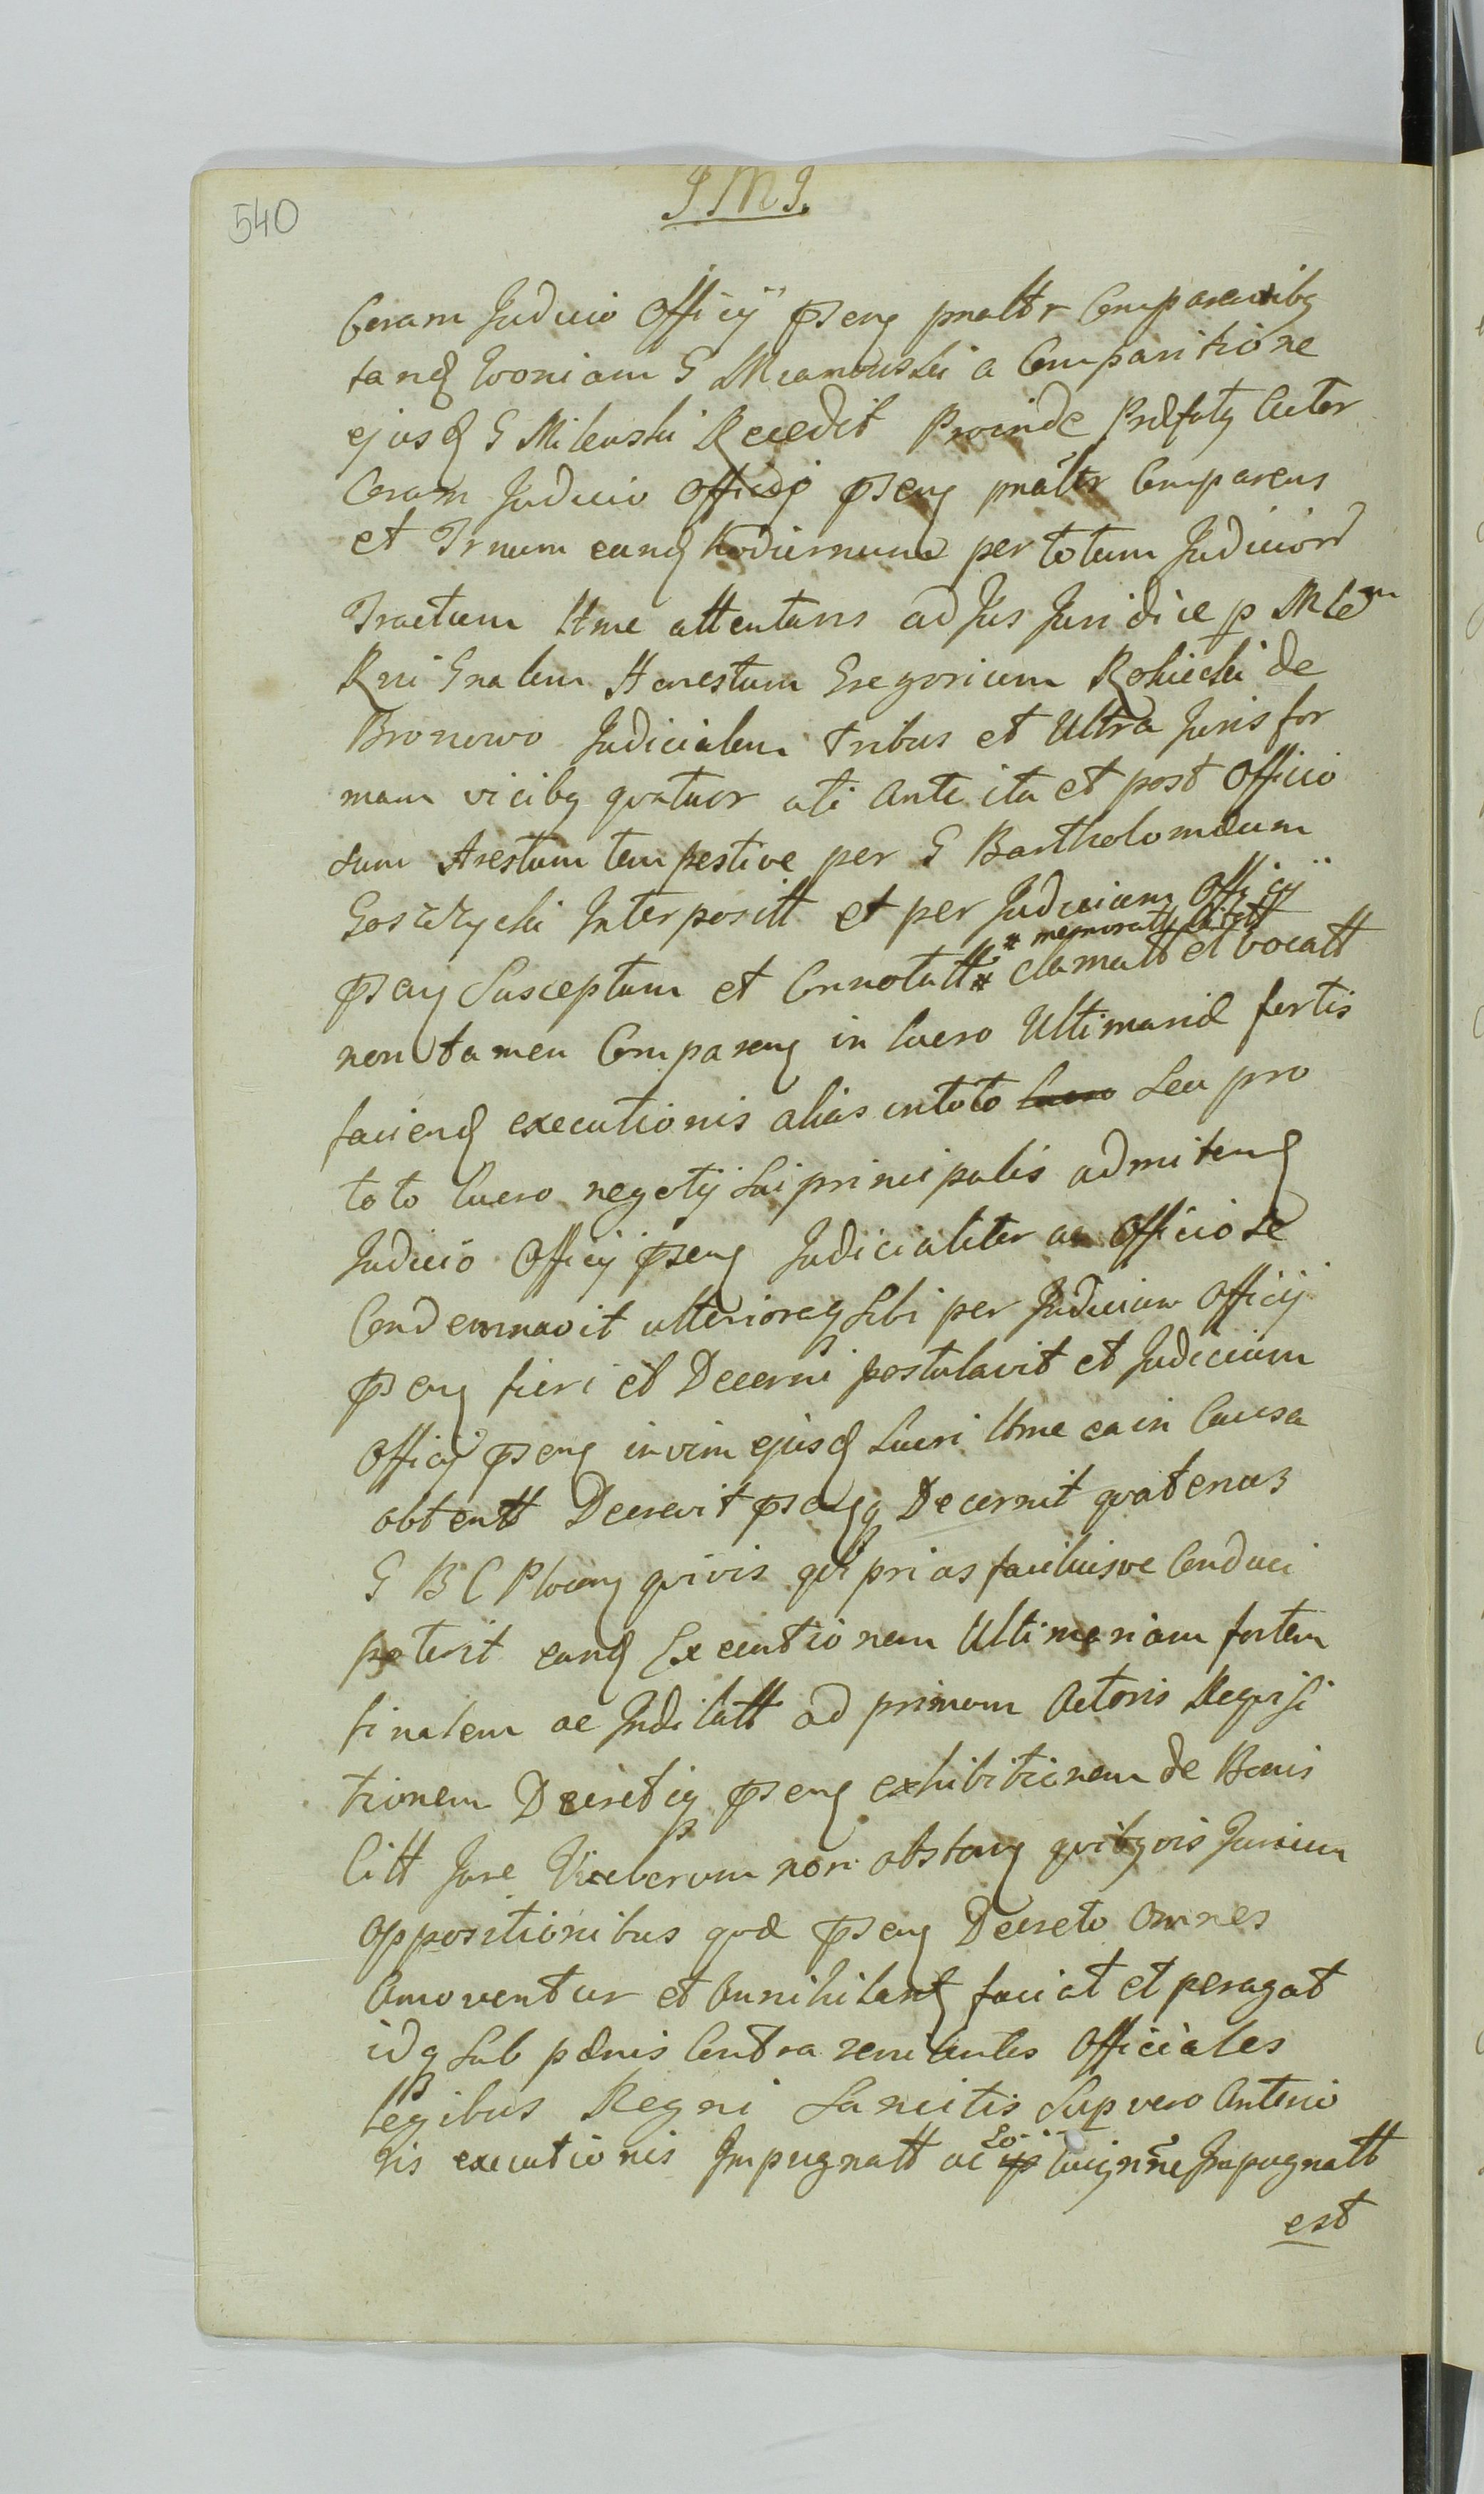 540
J M J.
Coram Judicio Officij pseng prsaltr Comparentibg
tandg Woniam G Mianowski a Comparitione
ejusd G Milewski Recedit Proinde Prdfatg Actor
Coram Judicio Officij pseng prsaltr Comparens
et Trnum eand hodiernum per totum Judicior
Tractum ltme attentans ad Jus Juridice p Mlem
Rni Gnalem Honestum Gregorium Rokicki de
Bronowo Judicialem tribus et Ultra Juris for
mam vicibg qvatuor uti ante ita et post Officio
sum Arestum tempestive per G Bartholomæum
Gostzycki Interpositt et per Judicium Officij
pseng Susceptum et Connotatt * clamatt et vocatt
* memoratt Citatt
non tamen Compareng in lucro Ultimariæ fortis
faciend executionis alias in toto lucro seu pro
toto lucro negotij sui principalis admitend
Judicio Officij pseng Judicialiter ac Officiose
Condemnavit ulterioraq Sibi per Judicium Officij
pseng fieri et Decerni postulavit et Judicium
Officij pseng in vim ejusd Lucri ltme ea in Causa
obtentt Decrevit psengq Decernit qvatenus
G B C Ploceng qvivis qvi prius faciliusve Conduci
poterit eand Executionem Ultimariam fortem
finalem ac Indilatt ad primam Actoris Reqvisi
tionem Decretiq pseng exhibitionem de Bonis
Citt Jure Victorum non obstang qvibgvis Jurium
oppositionibus qvæ pseng Decreto omnes
Amoventur et Annihilantg faciat et peragat
idq sub pænis Contra renitentes Officiales
legibus Regni Sancitis Sup vero Anterio
ris executionis Impugnatt ac Lo luigne Impugnatt
est